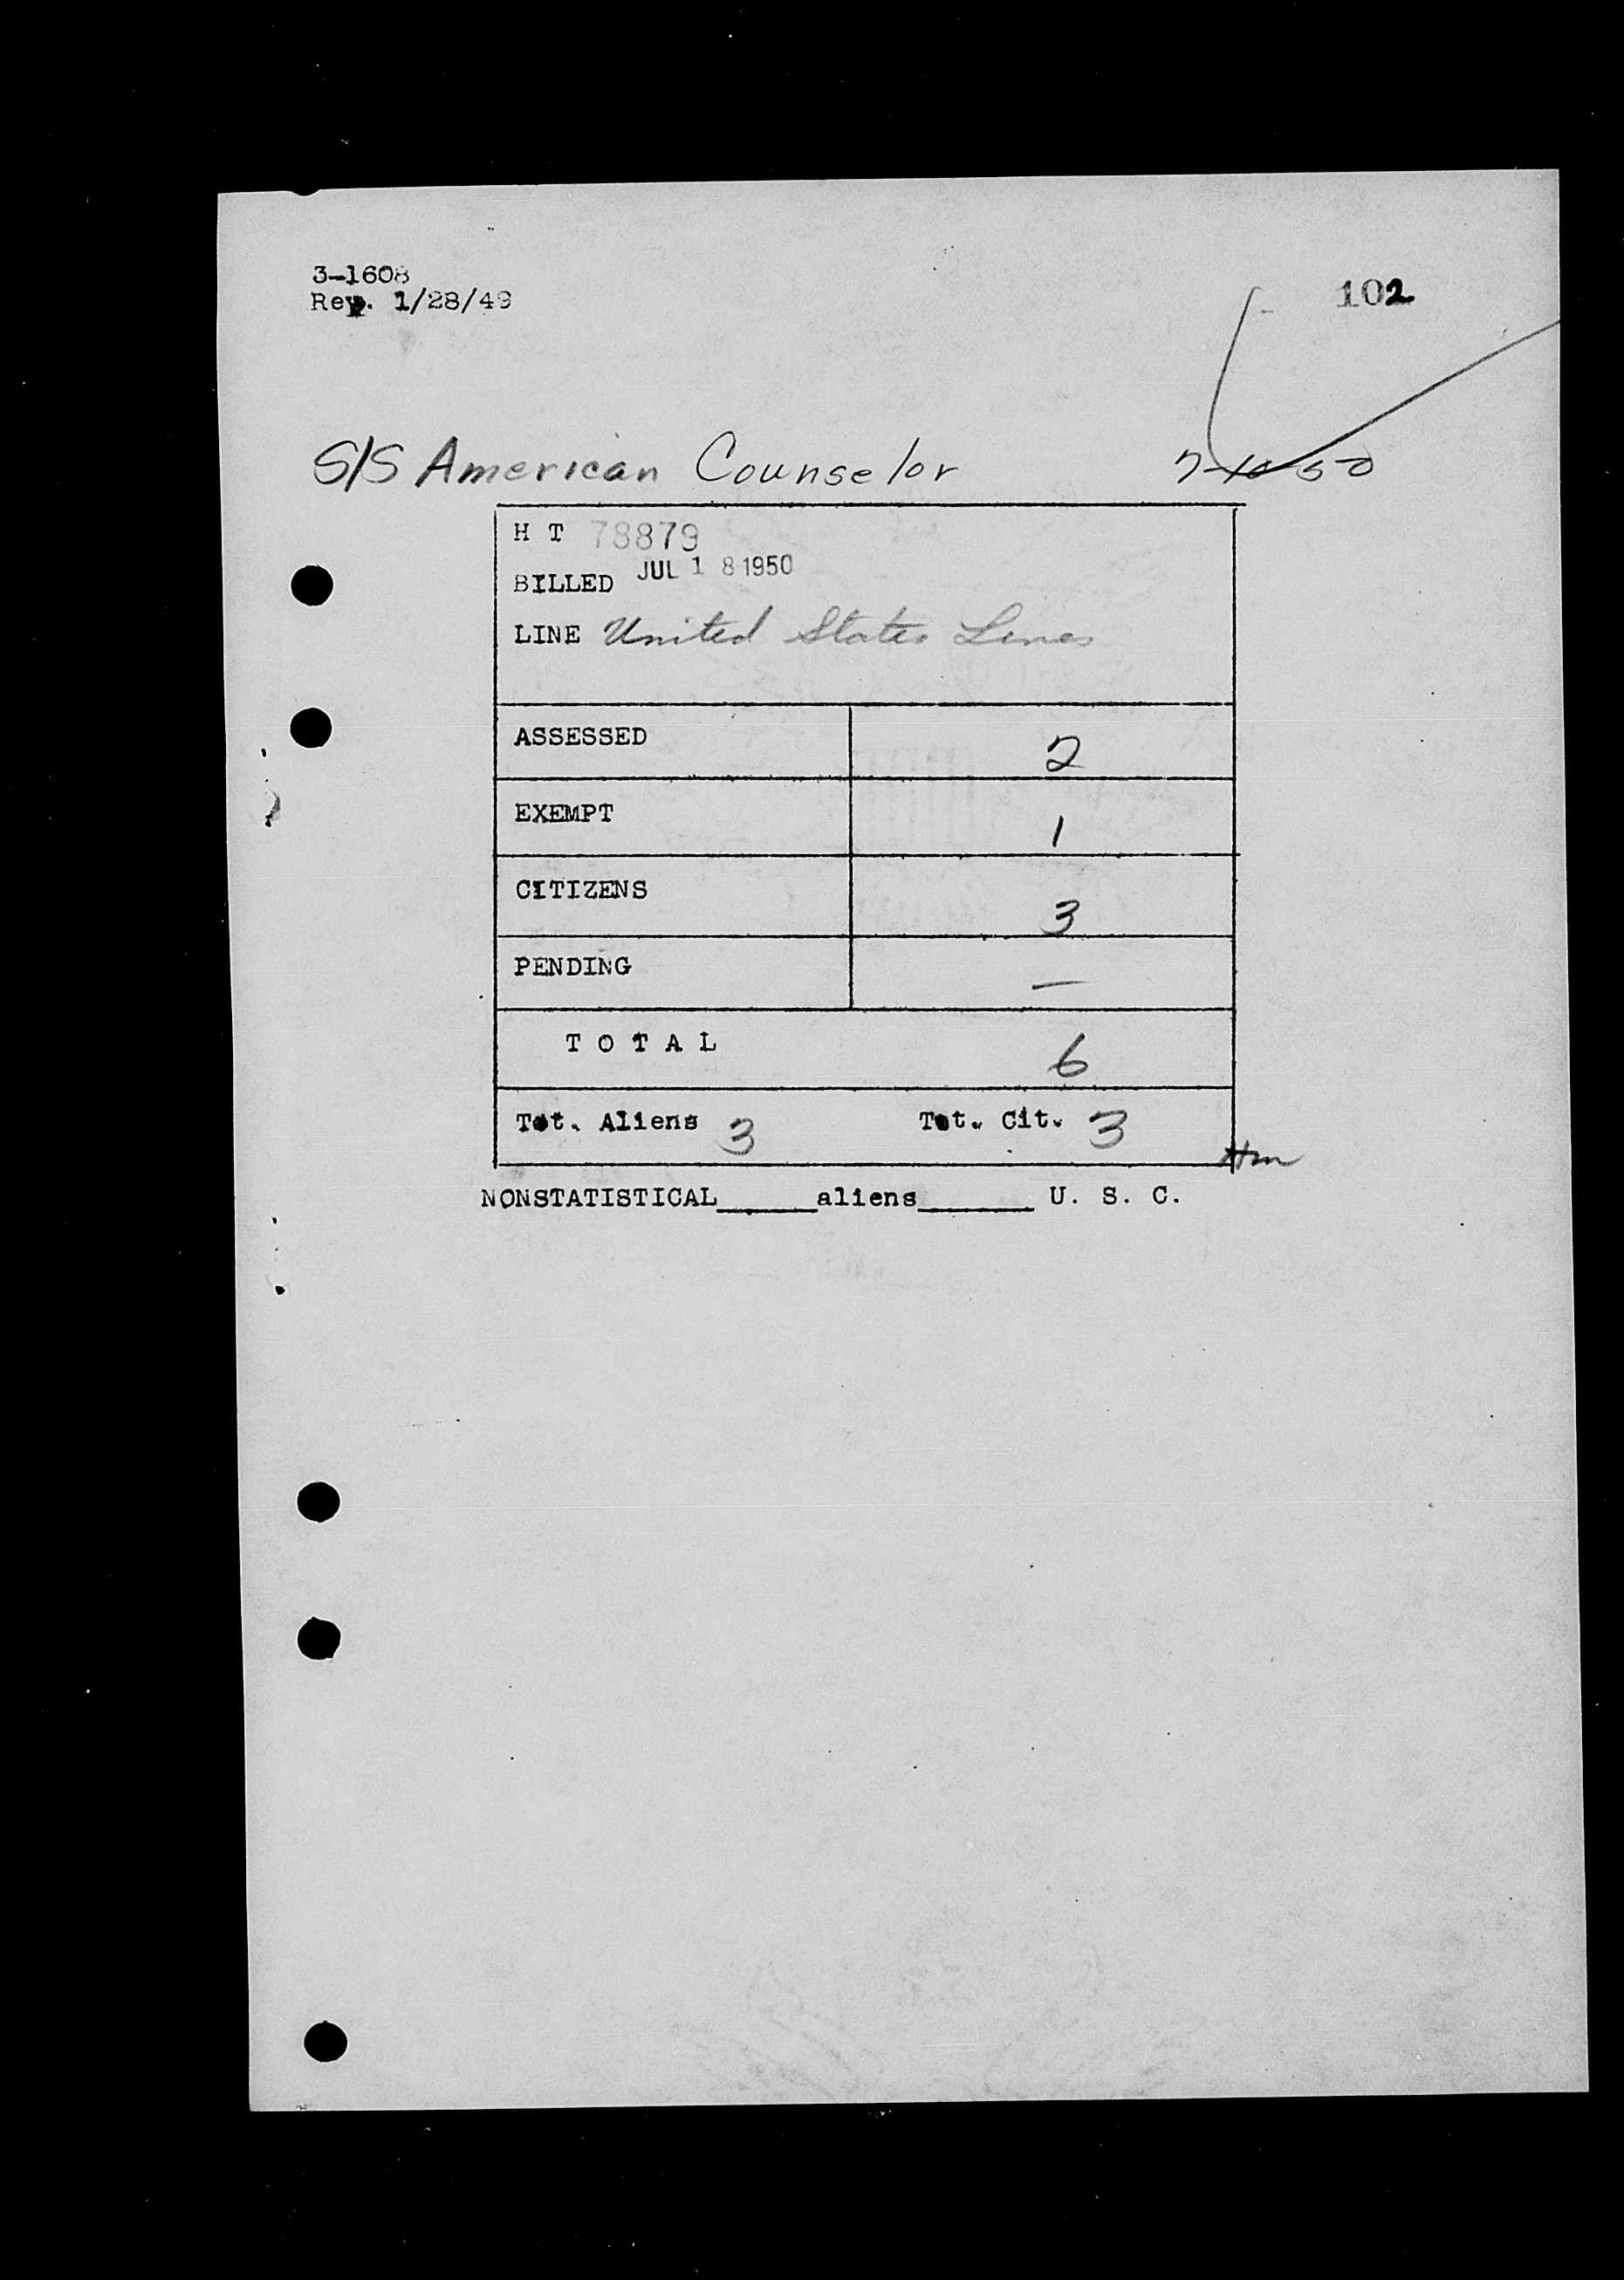 3-1608
Rev. 1/28/49
102
S/S American Counselor 7-10-50
H T 78879
BILLED JUL 18 1950
LINE United States Lines
ASSESSED 2
EXEMPT 1
CITIZENS 3
PENDING —
T O T A L 6
Tot. Aliens 3 Tot. Cit. 3
NONSTATISTICAL_____aliens______ U. S. C.